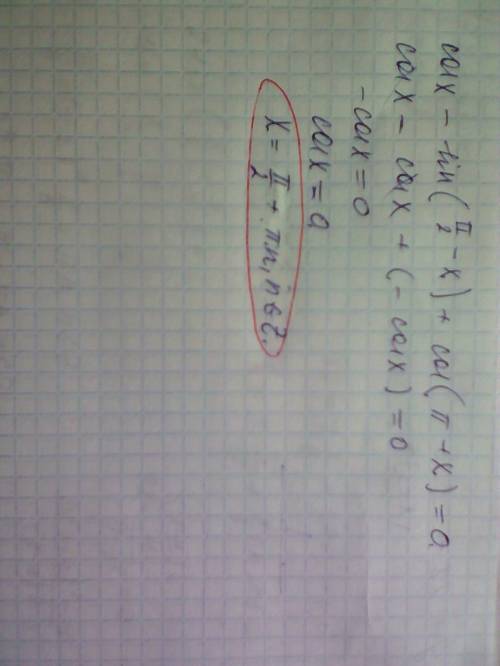 cos x - sin(π/2 - x) + cos(π + x) = 0,
cos x - cos x + (- cos x) = 0
- cos x = 0
cos x = 0,
x = π/2 + πn, n ∈ Z.